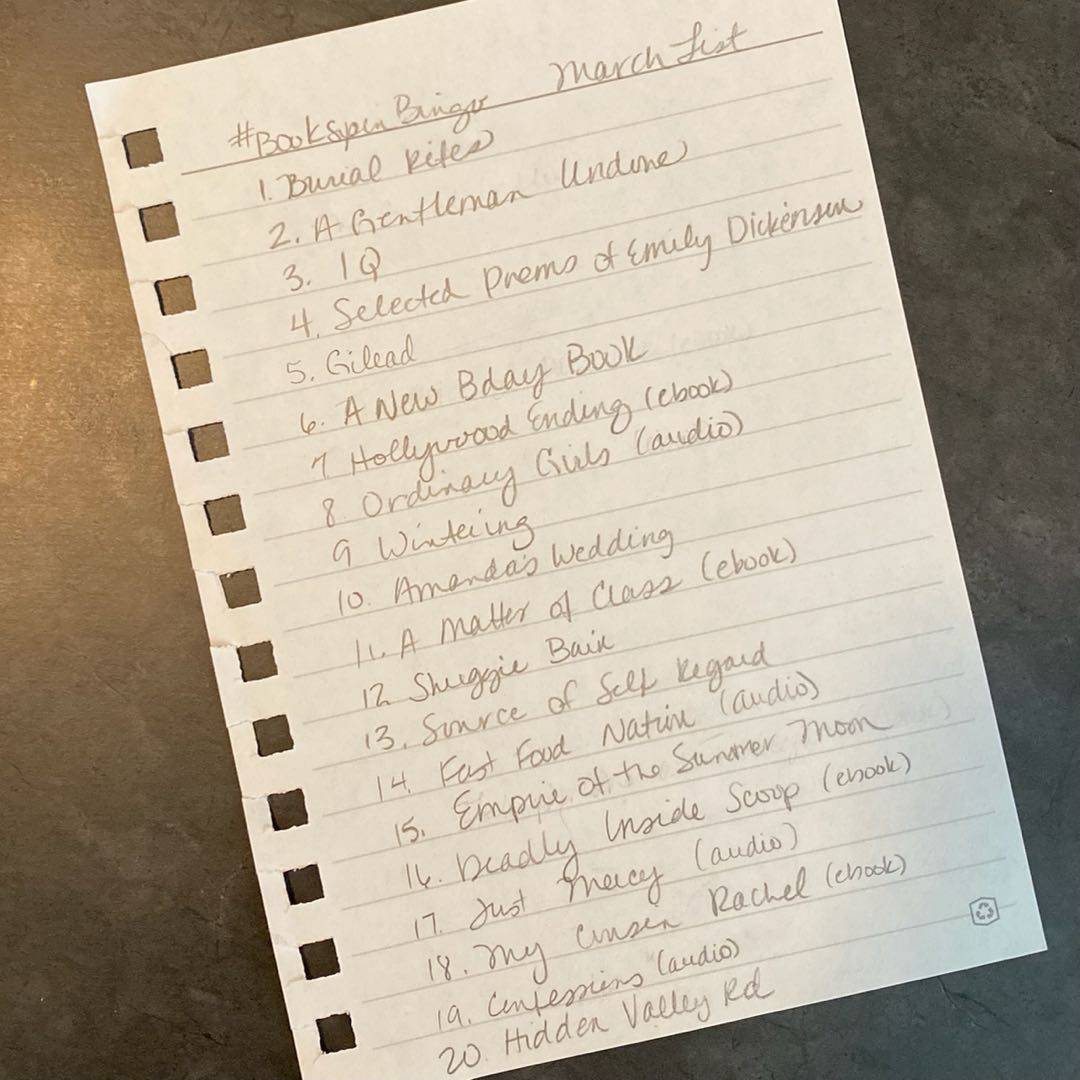 #Bookspin Bingo March List
1. Burial Rites
2. A Gentleman Undone
3. IQ
4. Selected Poems of Emily Dickenson
5. Gilead
6. A New Bday Book
7 Hollywood Ending (ebook)
8. Ordinary Girls (audio)
9 Wintering
10. Amanda's Wedding
11. A Matter of Class (ebook)
12 Shuggie Bain
13. Source of Self Regard
14. Fast Food Nation (audio)
15. Empire of the Summer Moon
16. Deadly Inside Scoop (ebook)
17. Just Mercy (audio)
18. My Cousen Rachel (ebook)
19. Confessions (audio)
20. Hidden Valley Rd